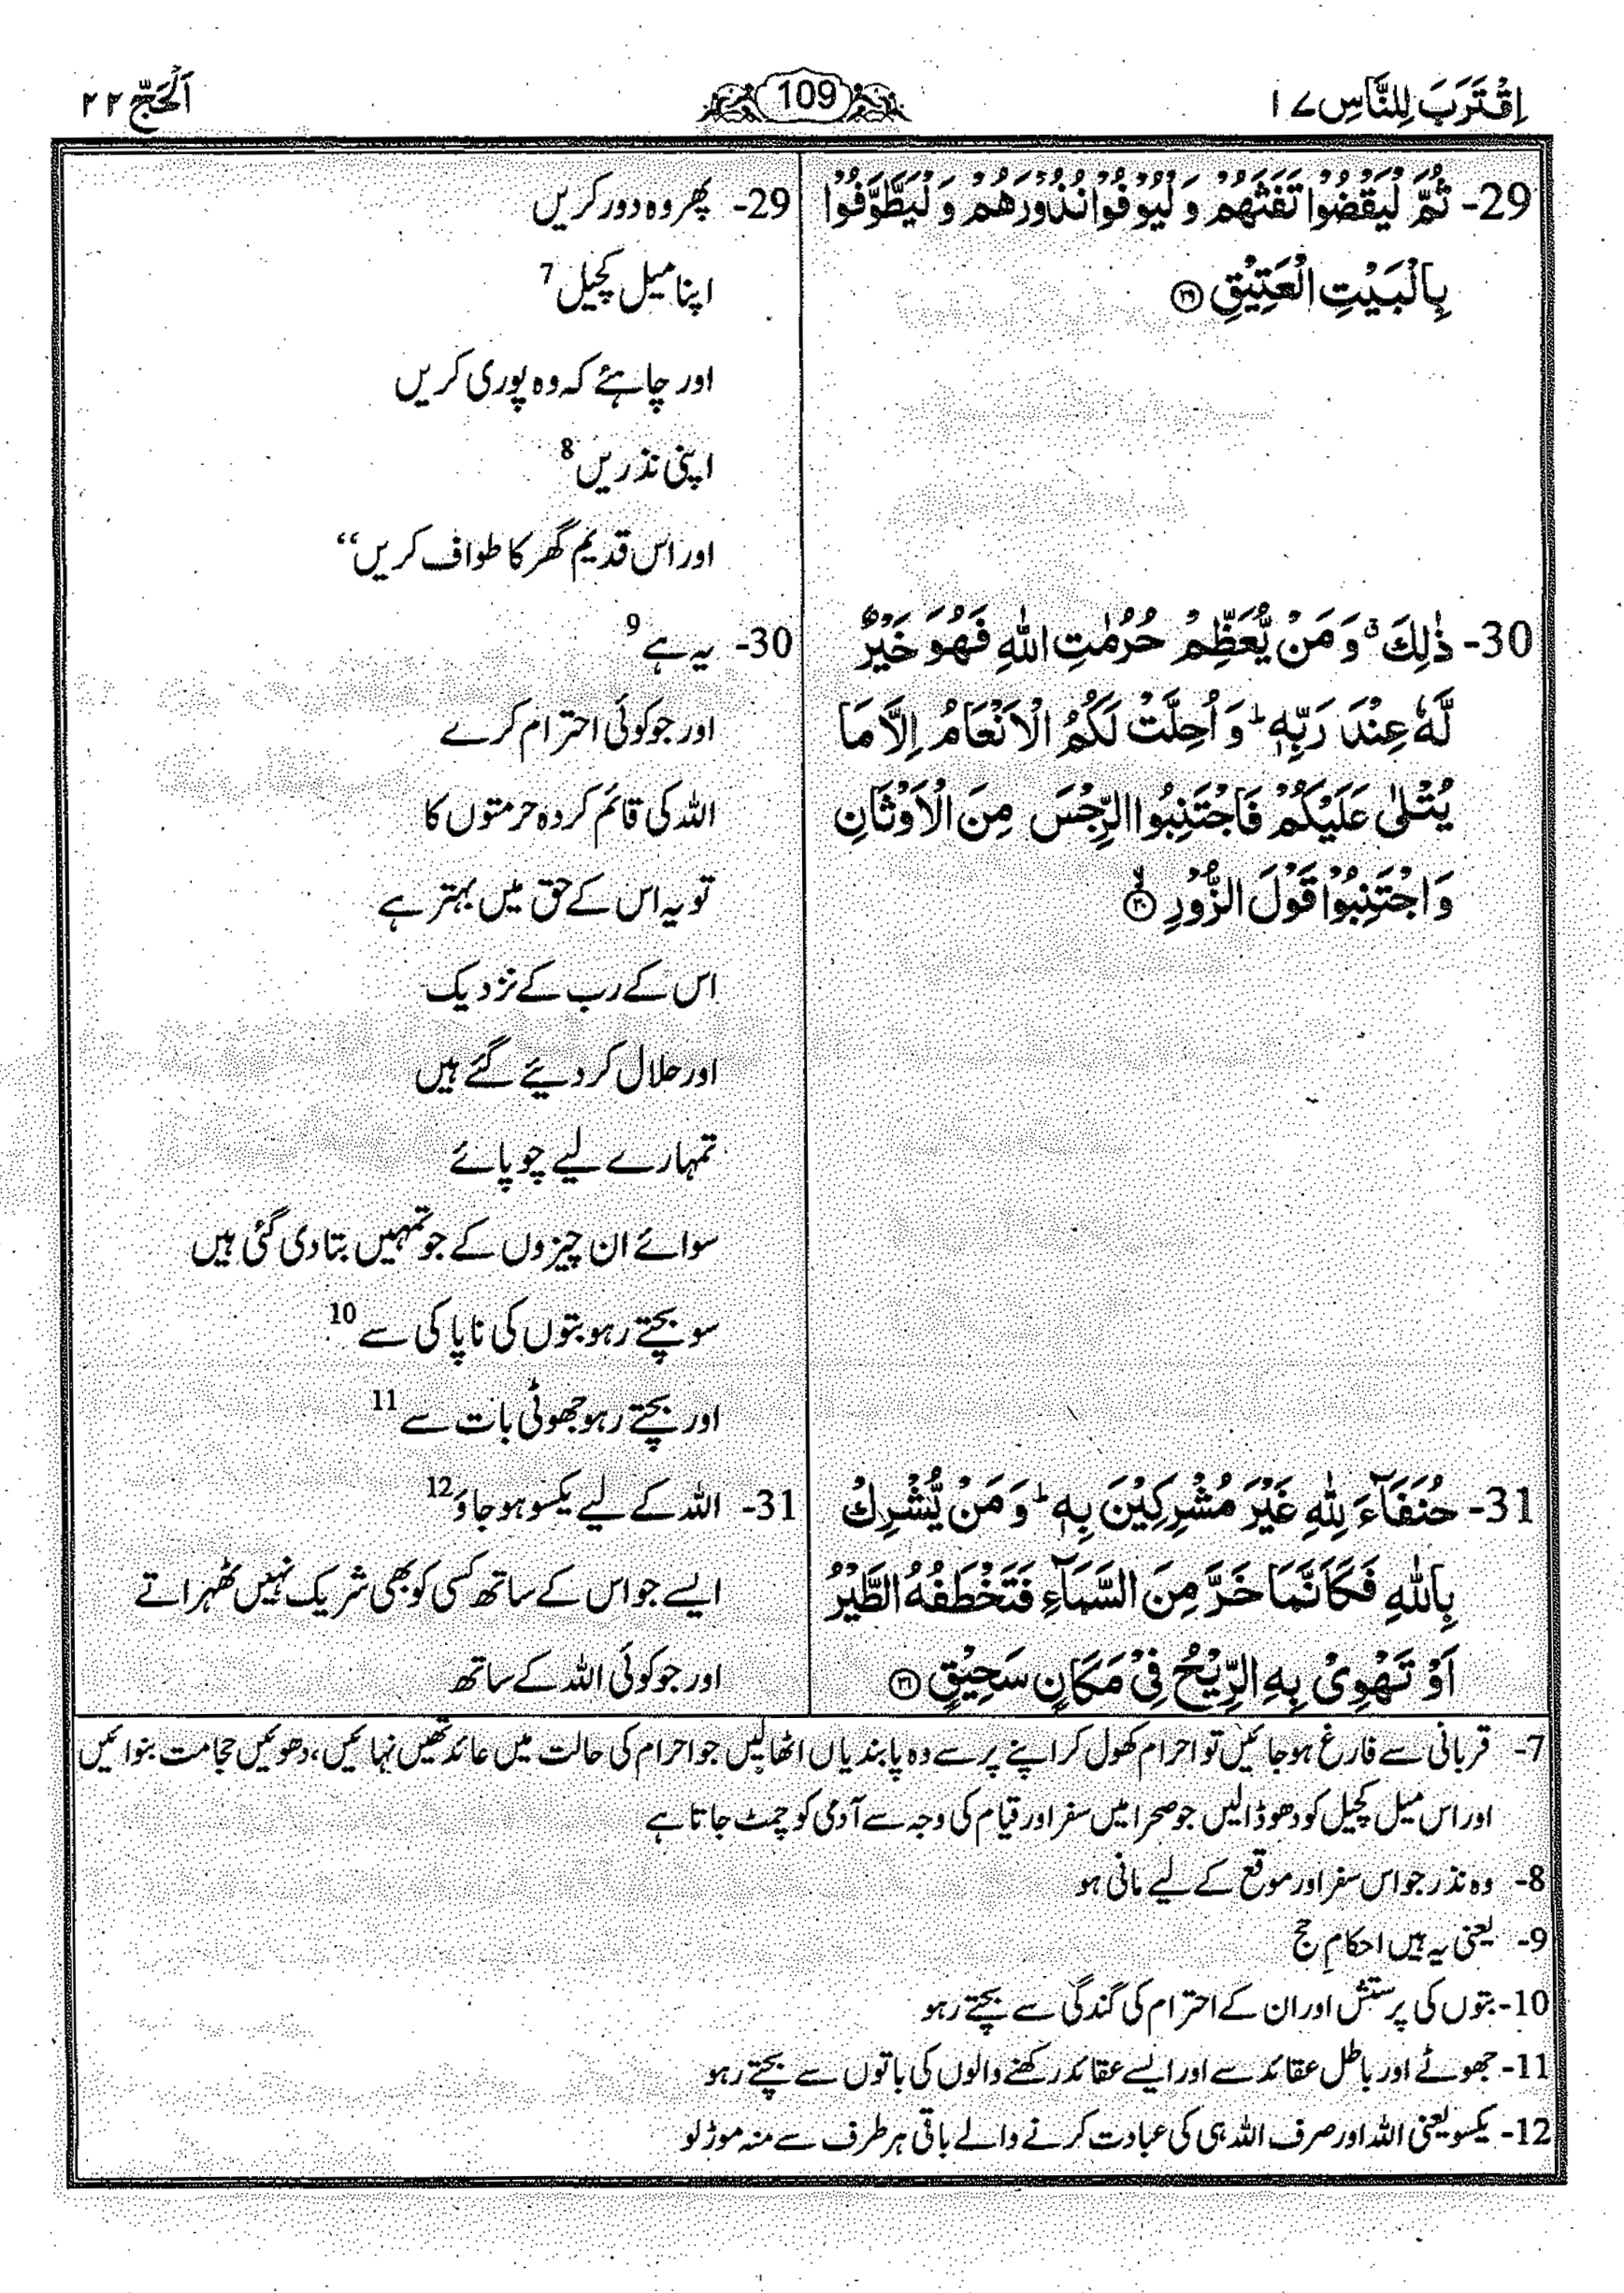 اِقْتَرَبَ لِلنَّاسِ ۱۷
109
اَلْحَجّ ۲۲
29- ثُمَّ لْيَقْضُوْا تَفَثَهُمْ وَلْيُوْفُوْا نُذُوْرَهُمْ وَلْيَطَّوَّفُوْا
بِالْبَيْتِ الْعَتِيْقِ ﴿۲۹﴾
29- پھر وہ دور کریں
اپنا میل کچیل 7
اور چاہئے کہ وہ پوری کریں
اپنی نذریں 8
اور اس قدیم گھر کا طواف کریں‘‘
30- ذٰلِكَ ۗ وَمَنْ يُّعَظِّمْ حُرُمٰتِ اللّٰهِ فَهُوَ خَيْرٌ
لَّهٗ عِنْدَ رَبِّهٖ ؕ وَاُحِلَّتْ لَكُمُ الْاَنْعَامُ اِلَّا مَا
يُتْلٰى عَلَيْكُمْ فَاجْتَنِبُوا الرِّجْسَ مِنَ الْاَوْثَانِ
وَاجْتَنِبُوْا قَوْلَ الزُّوْرِ ﴿۳۰﴾ ۙ
30- یہ ہے 9
اور جو کوئی احترام کرے
اللہ کی قائم کردہ حرمتوں کا
تو یہ اس کے حق میں بہتر ہے
اس کے رب کے نزدیک
اور حلال کر دیئے گئے ہیں
تمہارے لیے چوپائے
سوائے ان چیزوں کے جو تمہیں بتا دی گئی ہیں
سو بچتے رہو بتوں کی ناپاکی سے 10
اور بچتے رہو جھوٹی بات سے 11
31- حُنَفَآءَ لِلّٰهِ غَيْرَ مُشْرِكِيْنَ بِهٖ ؕ وَمَنْ يُّشْرِكْ
بِاللّٰهِ فَكَاَنَّمَا خَرَّ مِنَ السَّمَآءِ فَتَخْطَفُهُ الطَّيْرُ
اَوْ تَهْوِيْ بِهِ الرِّيْحُ فِيْ مَكَانٍ سَحِيْقٍ ﴿۳۱﴾
31- اللہ کے لیے یکسو ہو جاؤ 12
ایسے جو اس کے ساتھ کسی کو بھی شریک نہیں ٹھہراتے
اور جو کوئی اللہ کے ساتھ
7- قربانی سے فارغ ہو جائیں تو احرام کھول کر اپنے پر سے وہ پابندیاں اٹھا لیں جو احرام کی حالت میں عائد تھیں نہائیں، دھوئیں حجامت بنوائیں
اور اس میل کچیل کو دھو ڈالیں جو صحرا میں سفر اور قیام کی وجہ سے آدمی کو چمٹ جاتا ہے
8- وہ نذر جو اس سفر اور موقع کے لیے مانی ہو
9- یعنی یہ ہیں احکامِ حج
10- بتوں کی پرستش اور ان کے احترام کی گندگی سے بچتے رہو
11- جھوٹے اور باطل عقائد سے اور ایسے عقائد رکھنے والوں کی باتوں سے بچتے رہو
12- یکسو یعنی اللہ اور صرف اللہ ہی کی عبادت کرنے والے باقی ہر طرف سے منہ موڑ لو